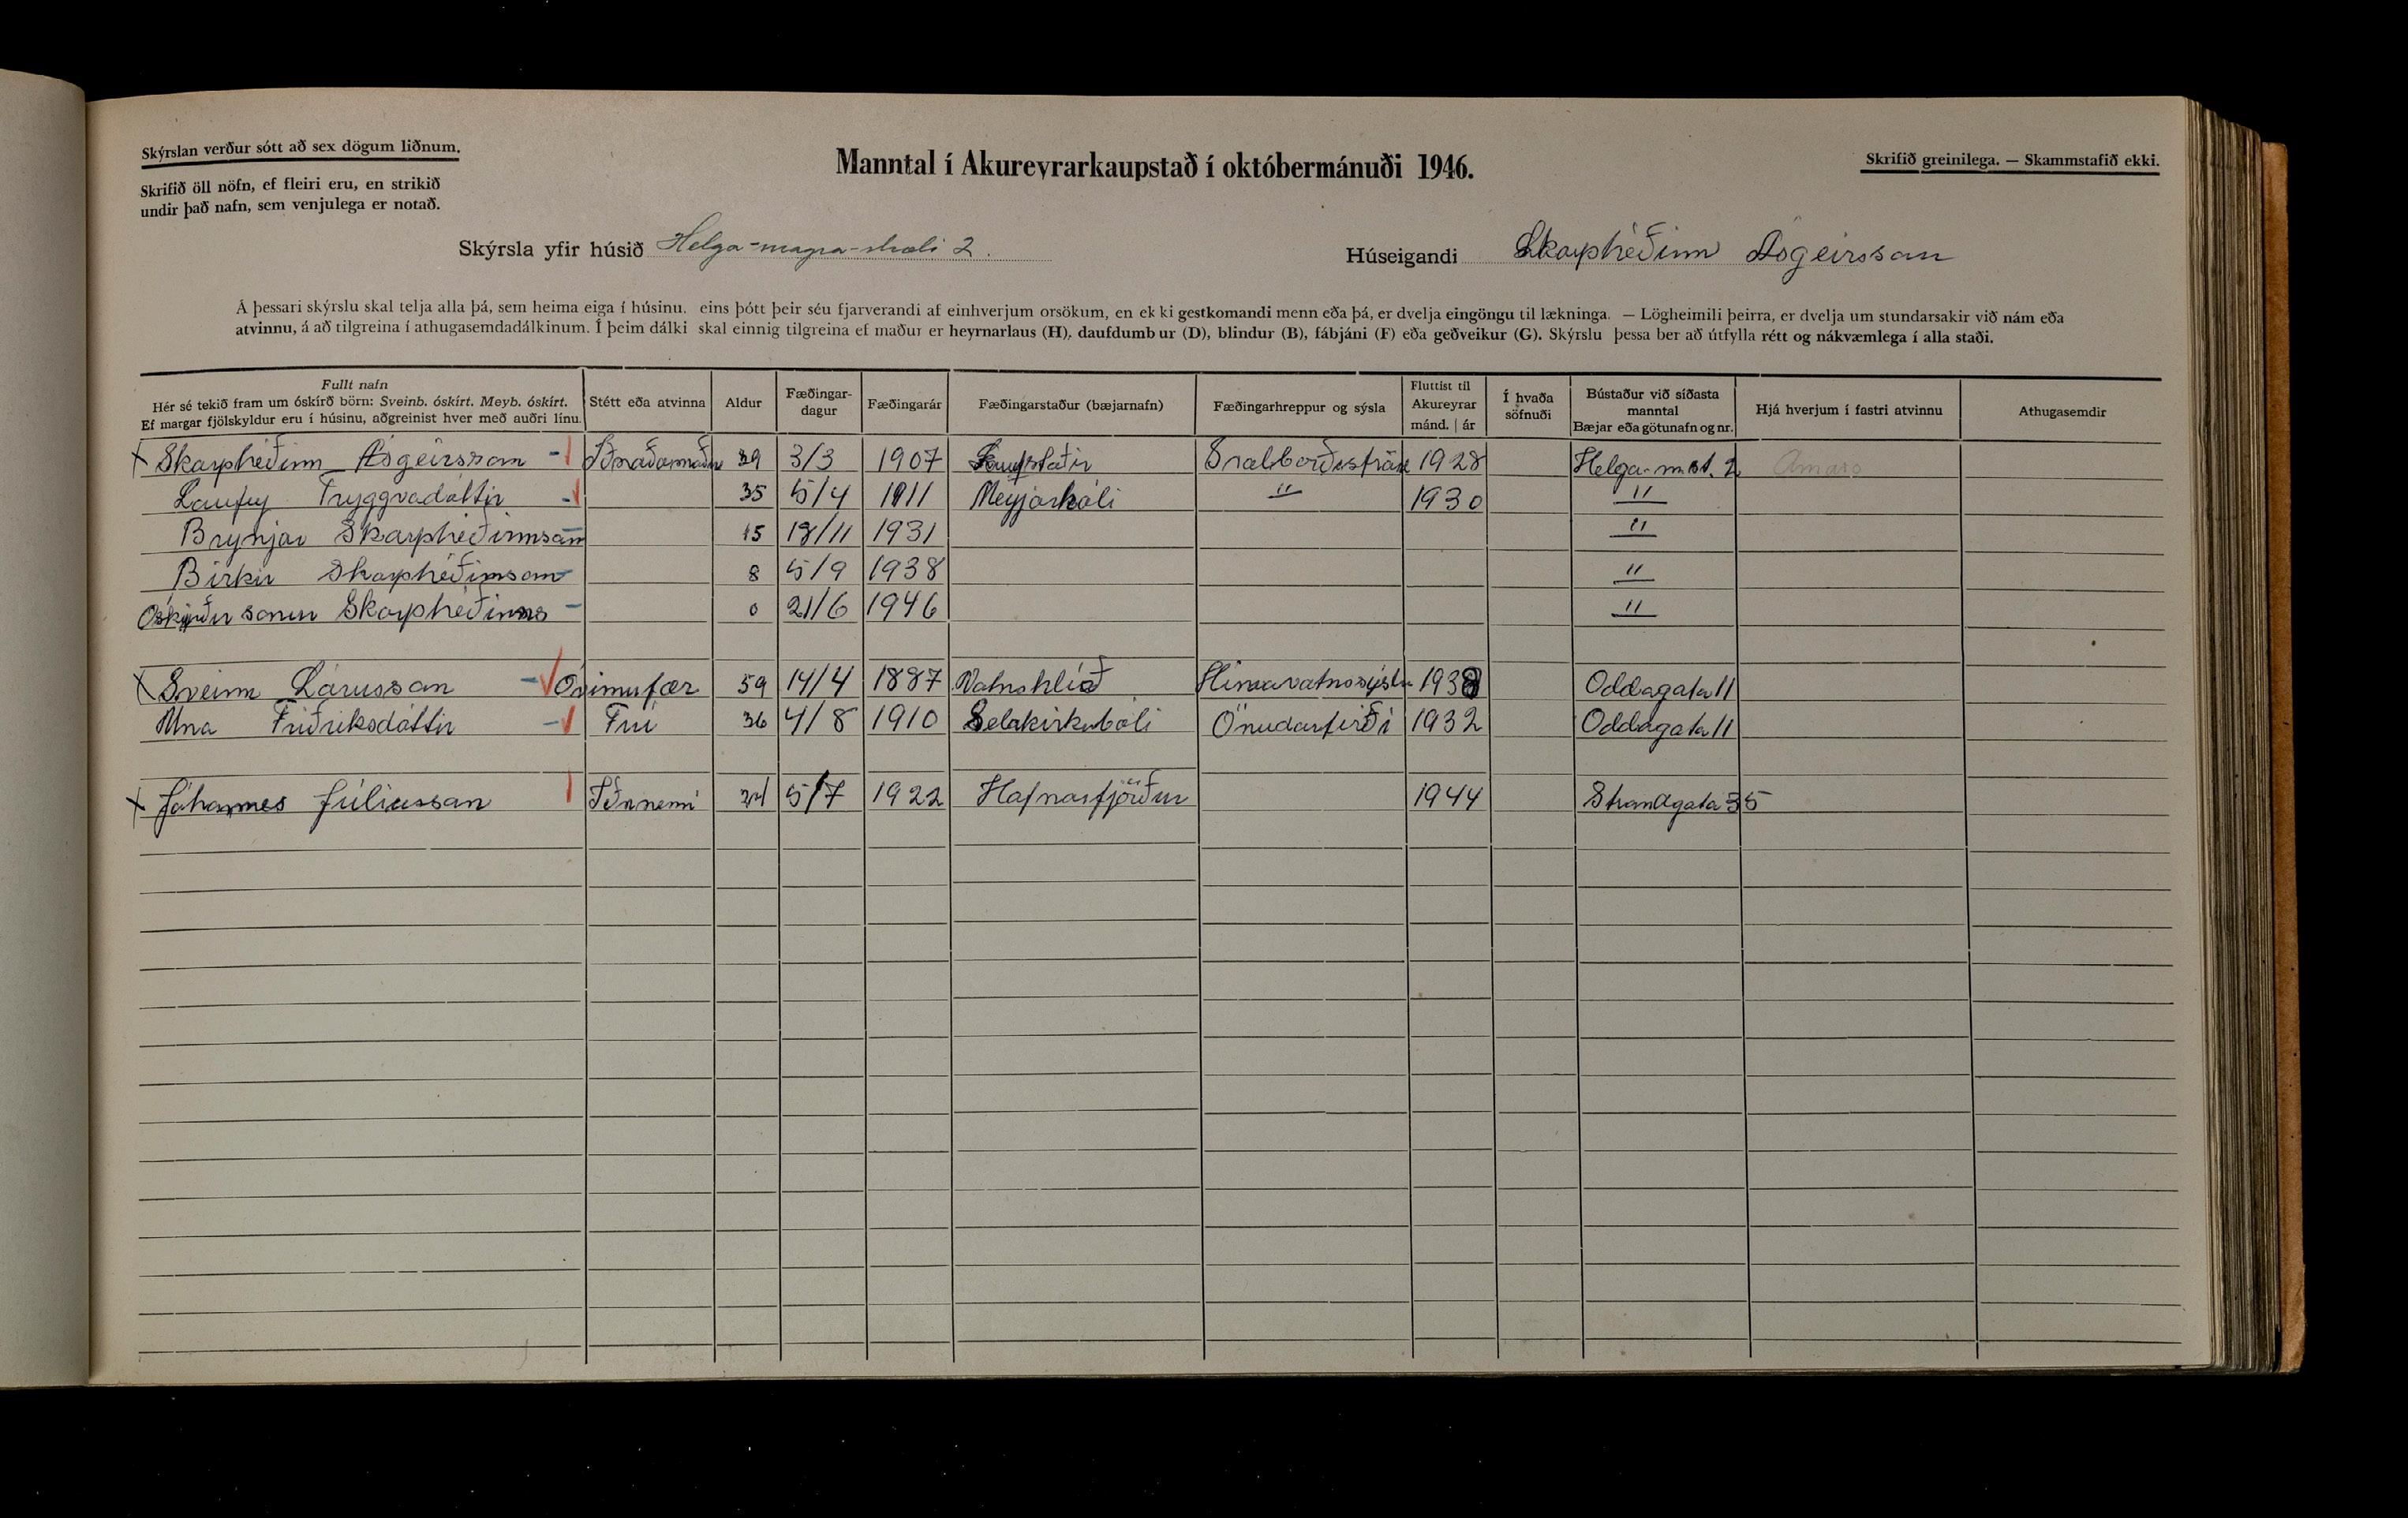 Skýrslan verður sótt að sex dögum liðnum.
Skrifið öll nöfn, ef fleiri eru, en strikið
undir það nafn, sem venjulega er notað.
Manntal í Akureyrarkaupstað í októbermánuði 1946.
Skrifið greinilega. — Skammstafið ekki.
Skýrsla yfir húsið Helga-magra-stræti 2.
Húseigandi Skarphéðinn Ásgeirsson
Á þessari skýrslu skal telja alla þá, sem heima eiga í húsinu, eins þótt þeir séu fjarverandi af einhverjum orsökum, en ekki gestkomandi menn eða þá, er dvelja eingöngu til lækninga. — Lögheimili þeirra, er dvelja um stundarsakir við nám eða
atvinnu, á að tilgreina í athugasemdadálkinum. Í þeim dálki skal einnig tilgreina ef maður er heyrnarlaus (H), daufdumbur (D), blindur (B), fábjáni (F) eða geðveikur (G). Skýrslu þessa ber að útfylla rétt og nákvæmlega í alla staði.
Fullt nafn
Hér sé tekið fram um óskírð börn: Sveinb. óskírt. Meyb. óskírt.
Ef margar fjölskyldur eru í húsinu, aðgreinist hver með auðri línu.
Stétt eða atvinna
Aldur
Fæðingar-
dagur
Fæðingarár
Fæðingarstaður (bæjarnafn)
Fæðingarhreppur og sýsla
Fluttist til
Akureyrar
mánd. | ár
Í hvaða
söfnuði
Bústaður við síðasta
manntal
Bæjar eða götunafn og nr.
Hjá hverjum í fastri atvinnu
Athugasemdir
x Skarphéðinn Ásgeirsson - Iðnaðarmaður 39 3/3 1907 1928 Helga-m.st. 2 Amaro
Laufey Tryggvadóttir - 35 5/4 1911 Meyjarhóli " 1930 "
Brynjar Skarphéðinnsson 15 18/11 1931 "
Birkir Skarphéðinsson 8 5/9 1938 "
Óskýrður sonur Skarphéðinns - 0 21/6 1946 "
x Sveinn Lárusson - Óvinnufær 59 14/4 1887 Vatnshlíð Húnavatnssýslu 1938 Oddagata 11
Una Friðriksdóttir - Frú 36 4/8 1910 Selakirkubóli Önudarfirði 1932 Oddagata 11
x Jóhannes Júlíusson Iðnnemi 24 5/7 1922 Hafnarfjörður 1944 Strandgata 35